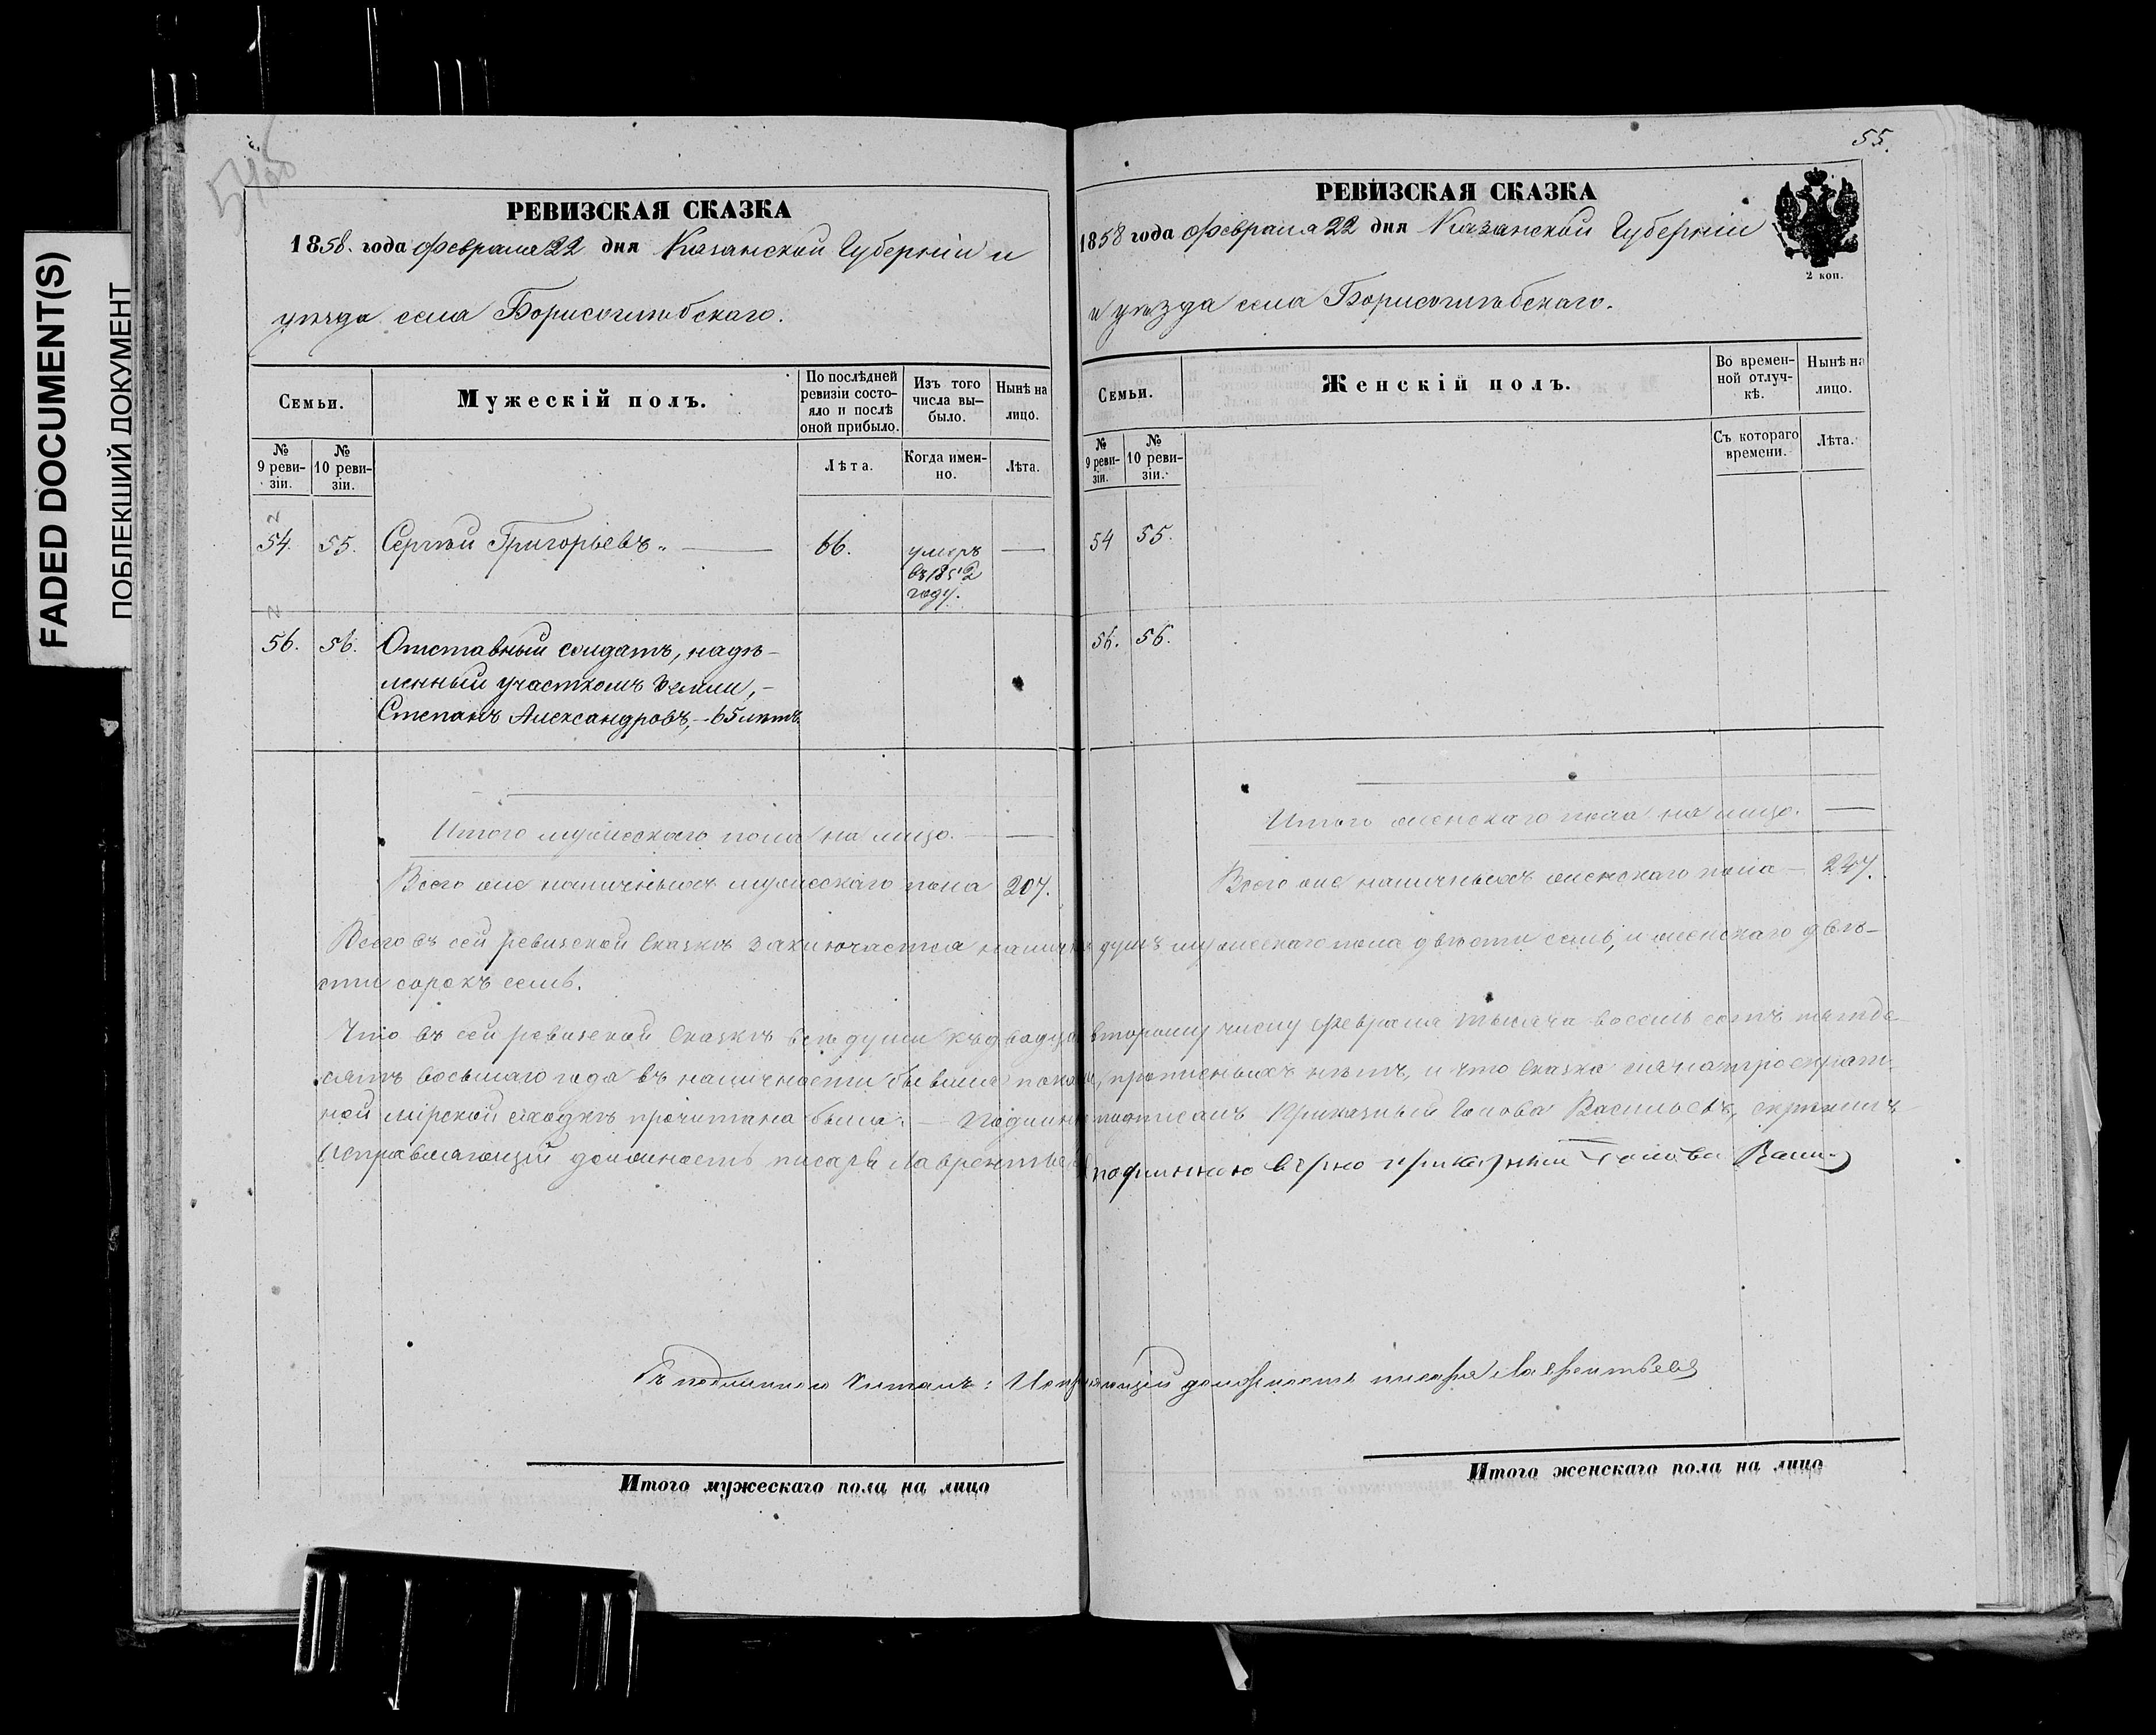 FADED DOCUMENT(S)
ПОБЛЕКШИЙ ДОКУМЕНТ
РЕВИЗСКАЯ СКАЗКА
1858. года Февраля 22 дня Казанской Губерніи и
уѣзда села Борисоглѣбскаго.
Семьи.
Мужескій полъ.
По послѣдней ревизіи состо-яло и послѣ оной прибыло.
Изъ того числа вы-было.
Нынѣ на лицо.
№ 9 реви-зіи.
№ 10 реви-зіи.
Лѣта.
Когда имен-но.
Лѣта.
54. 55. Сергѣй Григорьевъ. — 66. умеръ —
въ 1852
году.
56. 56. Отставный солдатъ, надѣ-
ленный участкомъ земли, -
Степанъ Александровъ, - 65 лѣтъ
Итого мужескаго пола на лицо. —
Всего же наличныхъ мужескаго пола 207.
55.
РЕВИЗСКАЯ СКАЗКА
1858 года Февраля 22 дня Казанской Губерніи
2 коп.
и уѣзда села Борисоглѣбскаго.
Семьи.
Женскій полъ.
Во времен-ной отлуч-кѣ.
Нынѣ на лицо.
№ 9 реви-зіи.
№ 10 реви-зіи.
Съ котораго времени.
Лѣта.
54 55.
56. 56.
Итого женскаго пола на лицо. —
Всего же наличныхъ женскаго пола — 247.
Всего въ сей ревизской сказкѣ заключается налич душъ мужескаго пола двѣсти семь, и женскаго двѣ-
сти сорокъ семь.
Что въ сей ревизской сказкѣ всѣ души къ двадца второму числу Февраля тысяча восемь сотъ пятьде-
сятъ восьмаго года въ наличности бывшія показ, прописныхъ нѣтъ, и что сказка сія на троекрат-
ной мірской сходкѣ прочитана была. — Подлин подписалъ Приказный Голова Васильевъ, скрѣпилъ
Исправляющій должность писаря Лаврентьевъ
подлинною вѣрно приказный Голова Васи
Съ подлиннаго читалъ: Исправляющій должность писаря Лаврентьевъ
Итого мужескаго пола на лицо
Итого женскаго пола на лицо